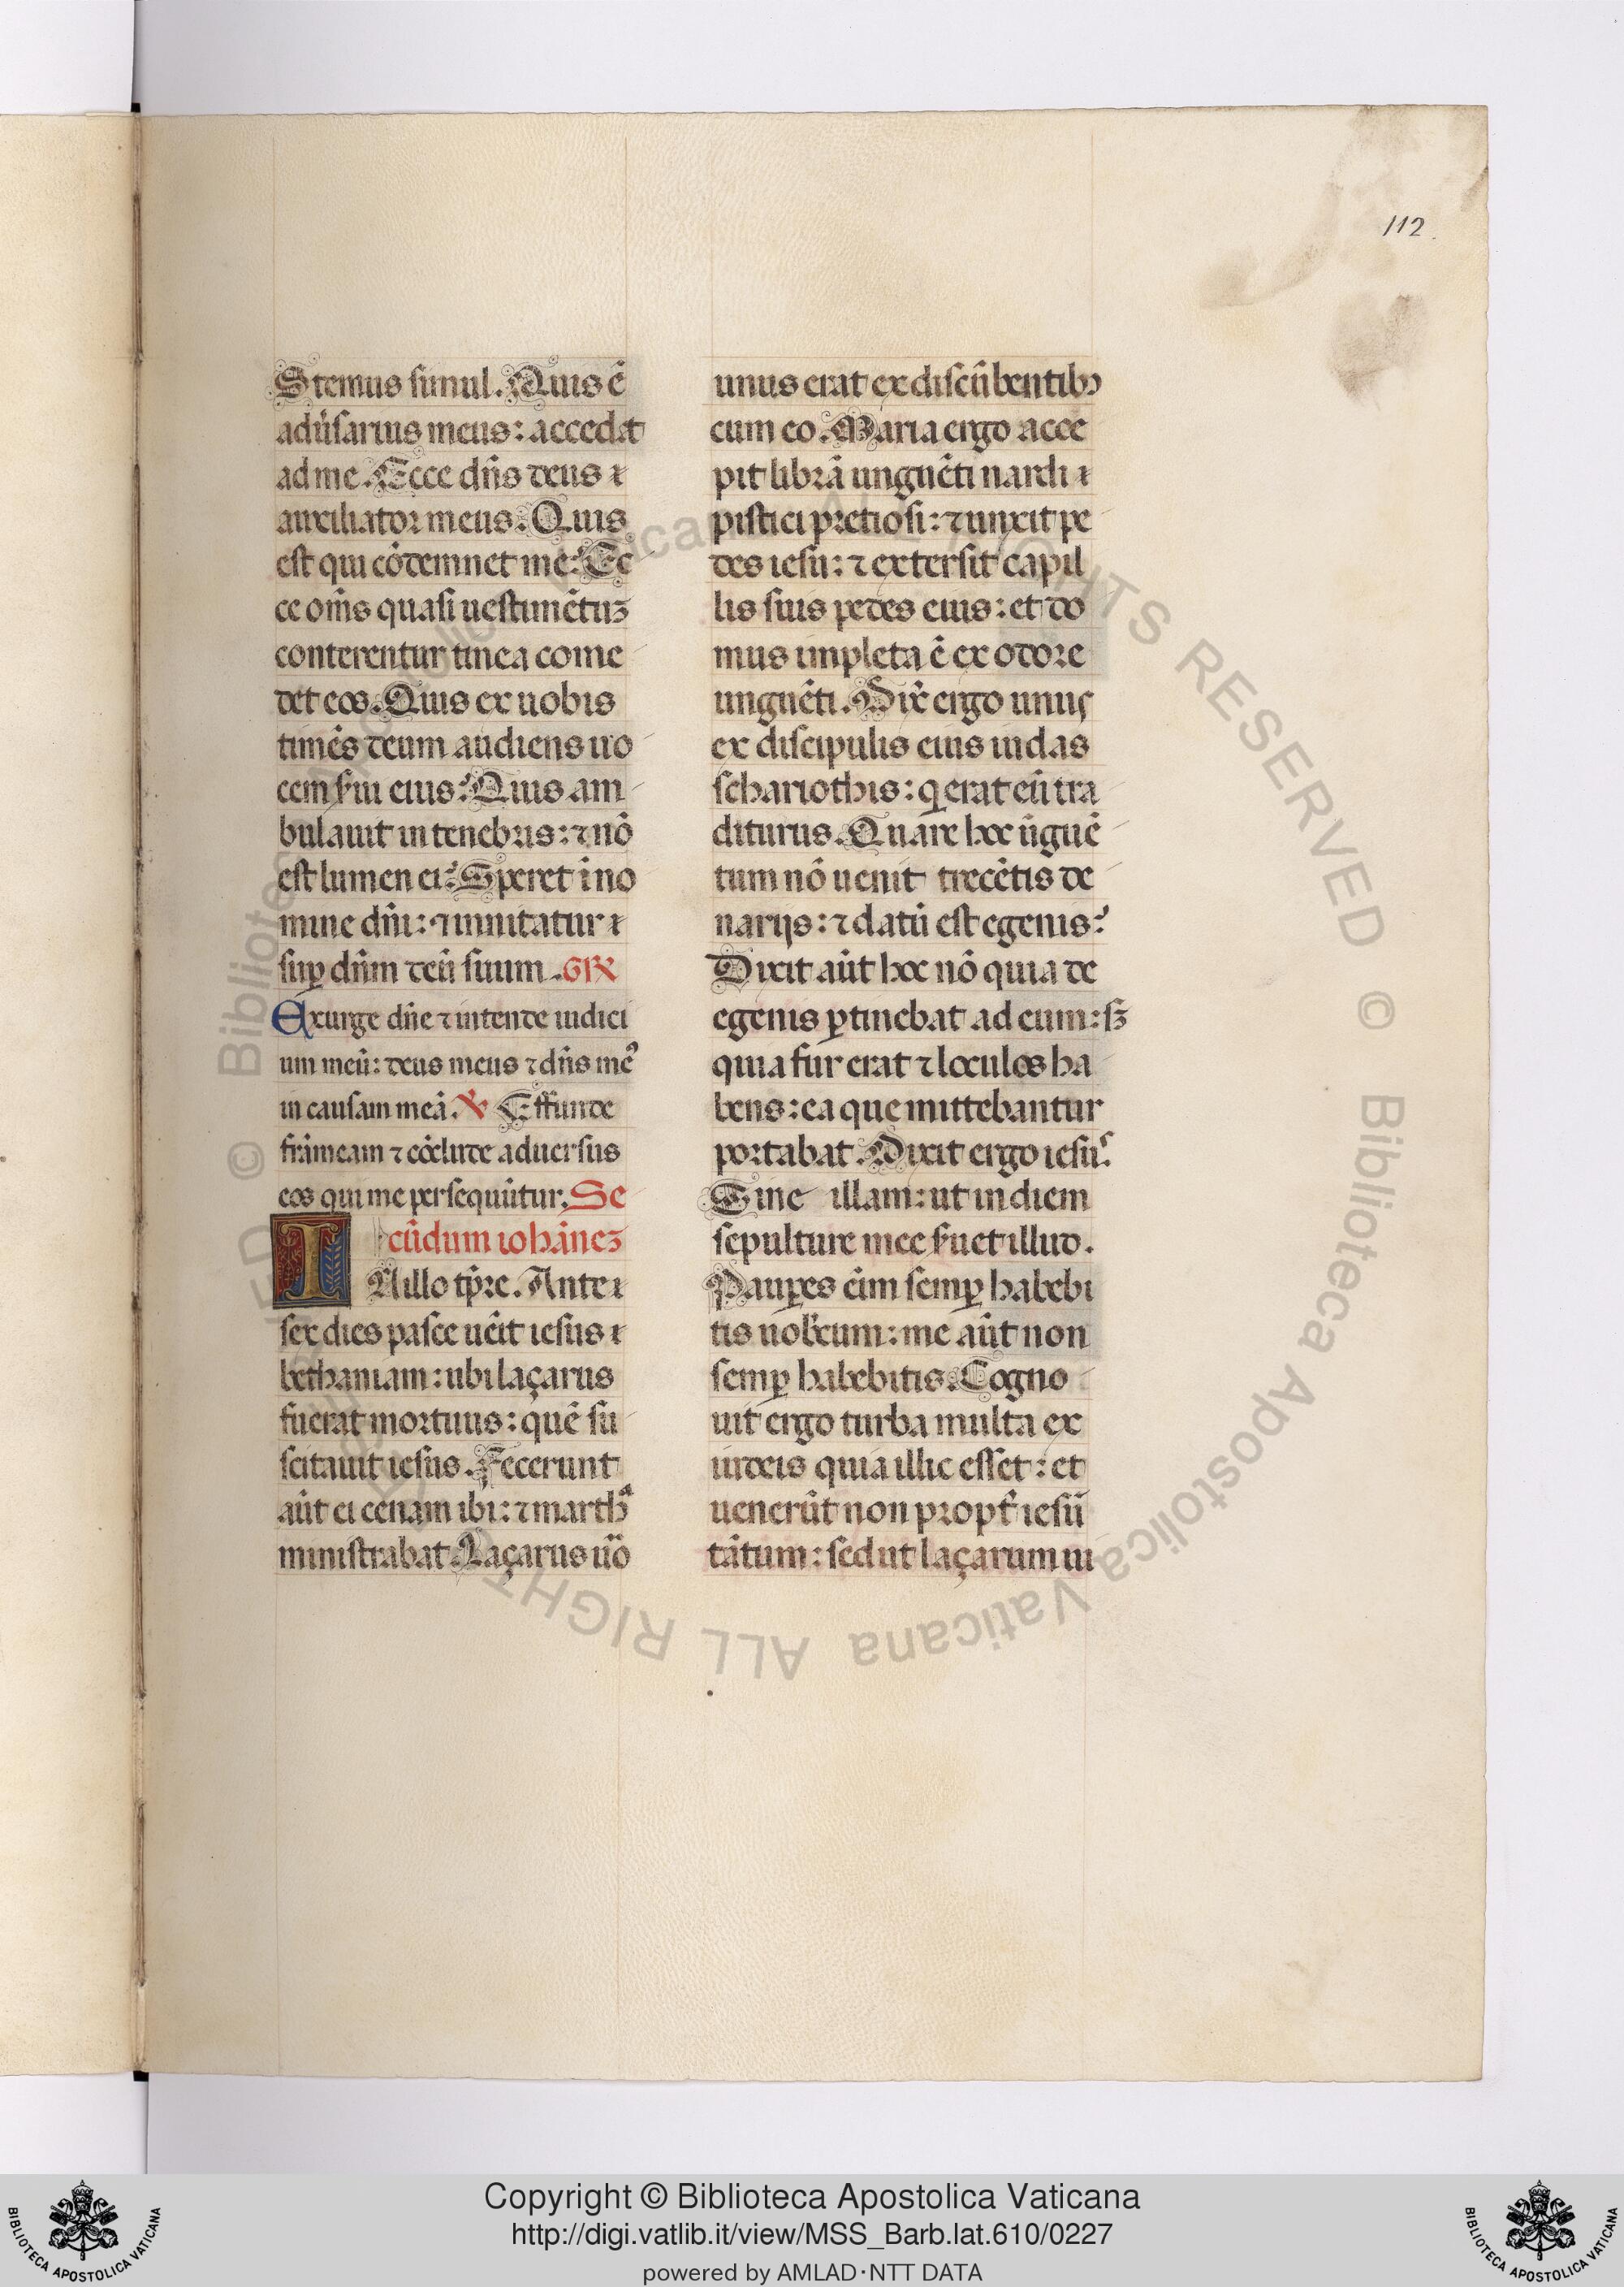 112.
Stemus simul. Quis ē
adu̔sarius meus: accedat
ad me. Ecce dn̄s deus ı
auxiliator meus. Quis
est qui cōdemnet me? Ec
ce om̄s quasi uestimētuꝫ
conterentur tinea come
det eos. Quis ex uobis
timēs deum audiens uo
cem sui eius? Quis am
bulauit in tenebris: ⁊ nō
est lumen ei? Speret ī no
mine dn̄i: ⁊ innitatur ı
suꝑ dn̄m deū suum. GR̄
Exurge dn̄e ⁊ intende iudici
um meū: deus meus ⁊ dn̄s meꝰ
in causam meā. ℣ Effunde
frāmeam ⁊ cōclude aduersus
eos qui me persequūtur. Se
cūdum iohāneꝫ
IN illo tp̄re. Ante ı
sex dies pasce uēit iesus ı
bethaniam: ubi laçarus
fuerat mortuus: quē su
scitauit iesus. Fecerunt
aūt ei cenam ibi: ⁊ marthᵃ
ministrabat. Laçarus ūo
unus erat ex discūbentibꝫ
cum eo. Maria ergo acce
pit librā unguēti nardi ı
pistici pretiosi: ⁊ unxit pe
des iesu: ⁊ extersit capil
lis suis pedes eius: et do
mus impleta ē ex odore
unguēti. Dix̄ ergo unus
ex discipulis eius iudas
schariothis: q̇ erat eū tra
diturus. Quare hoc ūguē
tum nō uenit trecētis de
narijs: ⁊ datū est egenis?
Dixit aūt hoc nō quia de
egenis ꝑtinebat ad eum: sꝫ
quia fur erat ⁊ loculos ha
bens: ea que mittebantur
portabat. Dixit ergo iesuˢ.
Sine illam: ut in diem
sepulture mee suet illud.
Pauꝑes eīm semꝑ habebi
tis nob̄cum: me aūt non
semꝑ habebitis. Cogno
uit ergo turba multa ex
iudeis quia illic esset: et
uenerūt non propt̄ iesū
tātum: sed ut laçarum ui
Copyright © Biblioteca Apostolica Vaticana
http://digi.vatlib.it/view/MSS_Barb.lat.610/0227
powered by AMLAD·NTT DATA
BIBLIOTECA APOSTOLICA VATICANA
BIBLIOTECA APOSTOLICA VATICANA
© Biblioteca Apostolica Vaticana ALL RIGHTS RESERVED © Biblioteca Apostolica Vaticana ALL RIGHTS RESERVED